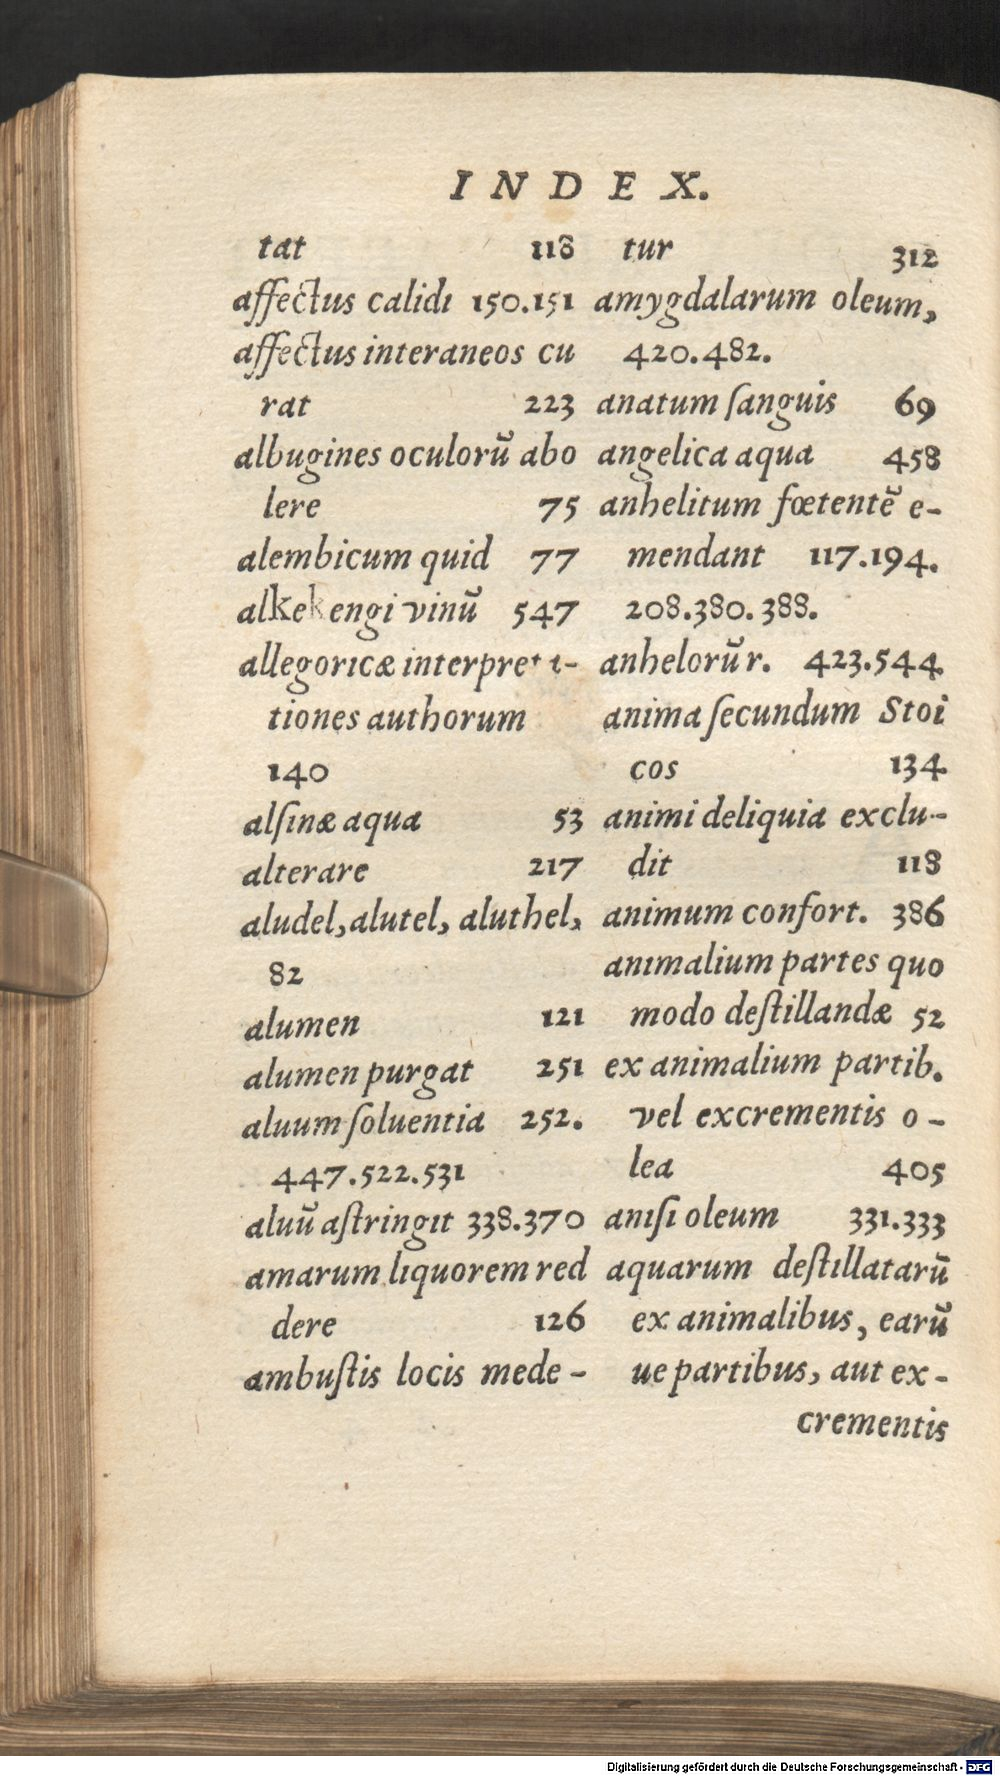 INDEX.
tat 118
affectus calidi 150.151
affectus interaneos cu
rat 223
albugines oculorũ abo
lere 75
alembicum quid 77
alkekengi vinũ 547
allegoricæ interpreta-
tiones authorum
140
alſinæ aqua 53
alterare 217
aludel, alutel, aluthel,
82
alumen 121
alumen purgat 251
aluum ſoluentia 252.
447.522.531
aluũ aſtringit 338.370
amarum liquorem red
dere 126
ambuſtis locis mede-
tur 312
amygdalarum oleum,
420.482.
anatum ſanguis 69
angelica aqua 458
anhelitum fœtentẽ e-
mendant 117.194.
208.380.388.
anhelorũ r. 423.544
anima ſecundum Stoi
cos 134
animi deliquia exclu-
dit 118
animum confort. 386
animalium partes quo
modo deſtillandæ 52
ex animalium partib.
vel excrementis o-
lea 405
aniſi oleum 331.333
aquarum deſtillatarũ
ex animalibus, earũ
ue partibus, aut ex-
crementis
Digitalisierung gefördert durch die Deutsche Forschungsgemeinschaft - DFG